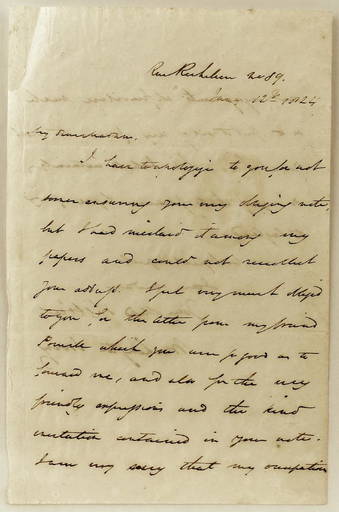 Rue Richelieu No 89.
June 12th 1824
My dear madam.
I have to apologize to you for not
sooner answering your very obliging note,
but I had mislaid it among my
papers and could not recollect
your address. I feel very much obliged
to you for the letter from my friend
which you were so good as to
forward me, and also for the very
friendly expressions and the kind
invitation contained in your note.
I am very sorry that my occupation